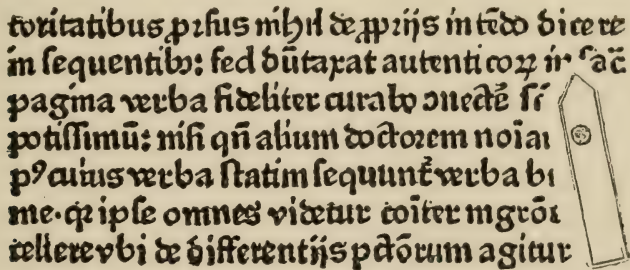 toritatibus prſus nihil de ꝓprijs intēdo dicere
in ſequentibꝫ: ſed dūtaxat autenticoꝝ in ſac̄
pagina verba fideliter curabo ꝯnectē
potiſſimū: niſi qn̄ alium doctorem
pꝰ cuius verba ſtatim ſequunt̄ verba
me. qꝛ ipſe omnes videtur cōiter
cellere vbi de differentijs pctōrum agitur